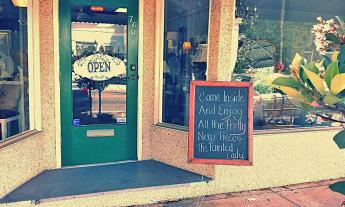 768
OPEN
Come Inside
And Enjoy
All the Pretty
New Pieces
The Painted
Lady